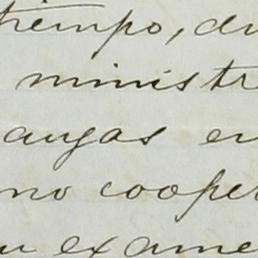 tiempo, du
ministr
augas en
no cooper
u exame